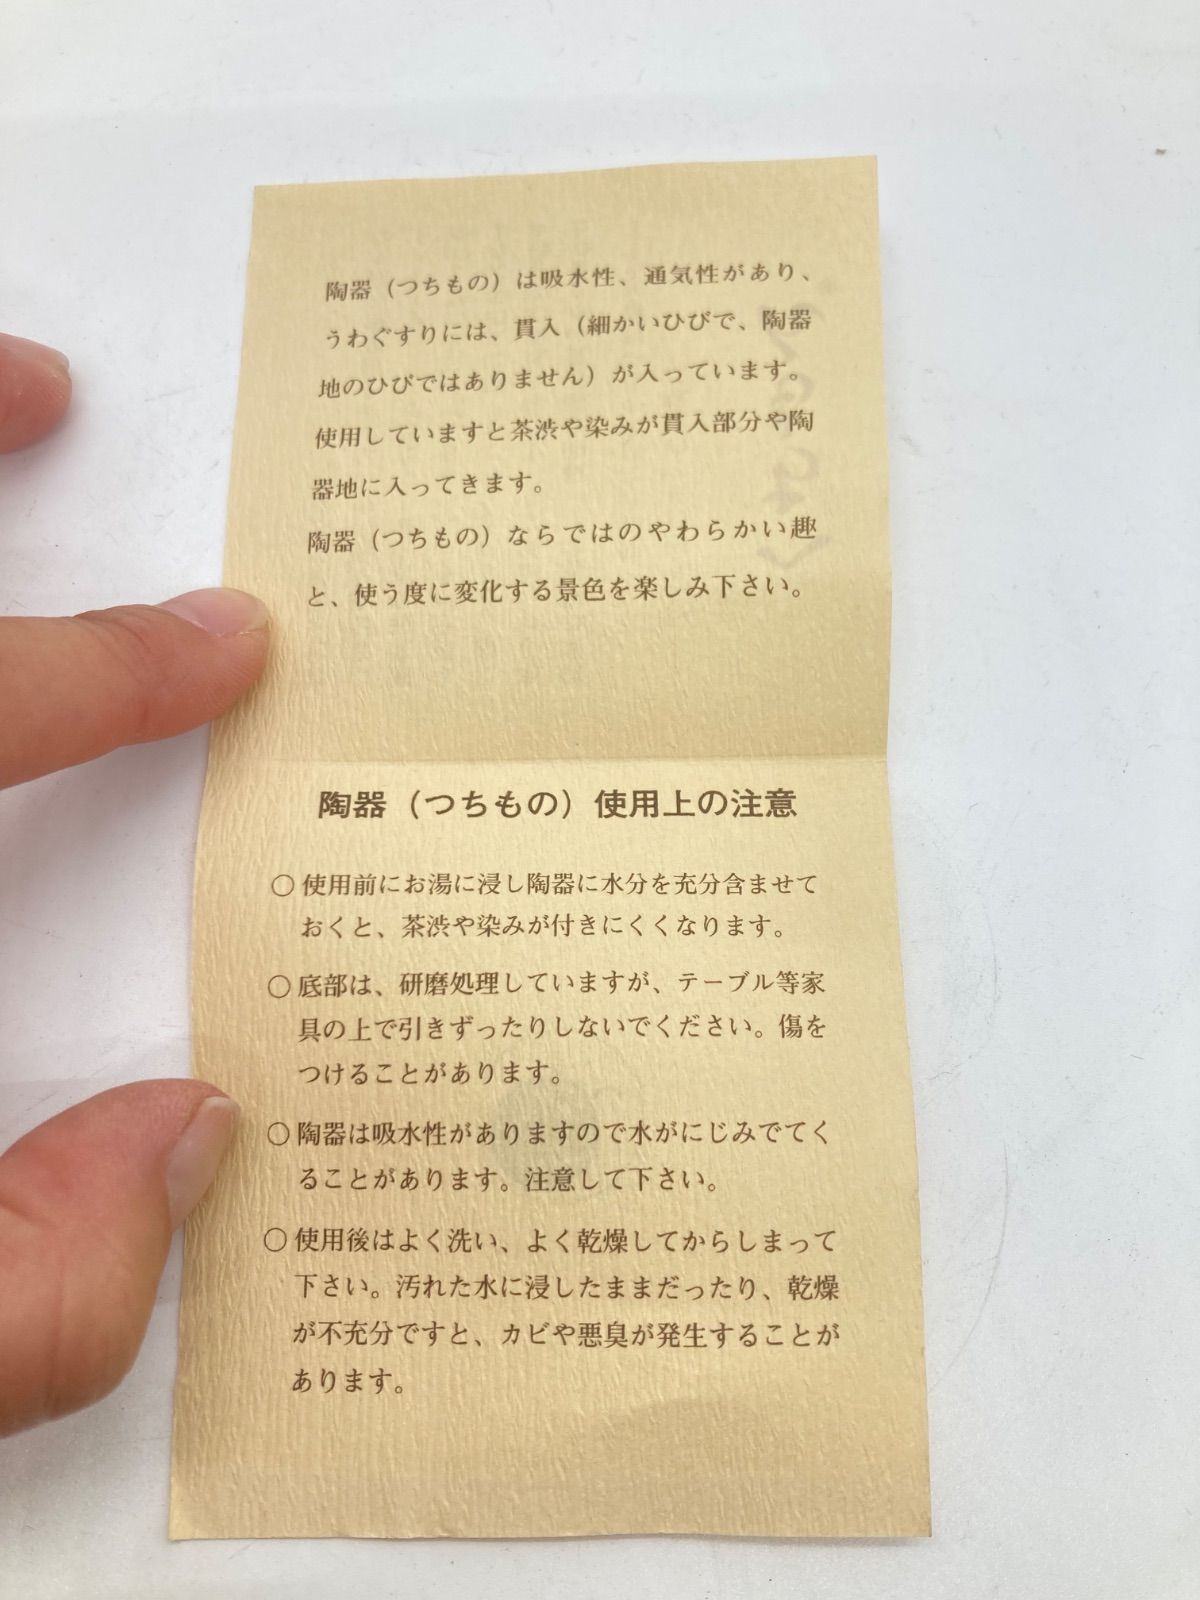 陶器（つちもの）は吸水性、通気性があり、
うわぐすりには、貫入（細かいひびで、陶器
地のひびではありません）が入っています。
使用していますと茶渋や染みが貫入部分や陶
器地に入ってきます。
陶器（つちもの）ならではのやわらかい趣
と、使う度に変化する景色を楽しみ下さい。
陶器（つちもの）使用上の注意
○使用前にお湯に浸し陶器に水分を充分含ませて
おくと、茶渋や染みが付きにくくなります。
○底部は、研磨処理していますが、テーブル等家
具の上で引きずったりしないでください。傷を
つけることがあります。
○陶器は吸水性がありますので水がにじみでてく
ることがあります。注意して下さい。
○使用後はよく洗い、よく乾燥してからしまって
下さい。汚れた水に浸したままだったり、乾燥
が不充分ですと、カビや悪臭が発生することが
あります。